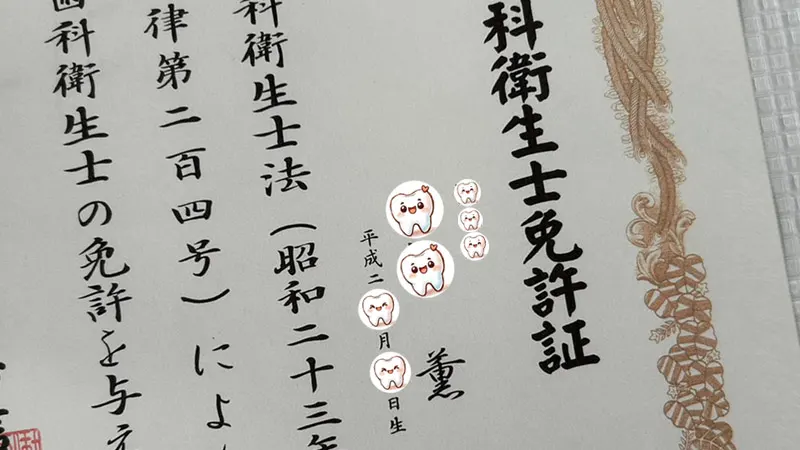 科衛生士免許証
薫
平成二
月
日生
科衛生士法(昭和二十三年
律第二百四号)によ
科衛生士の免許を与え